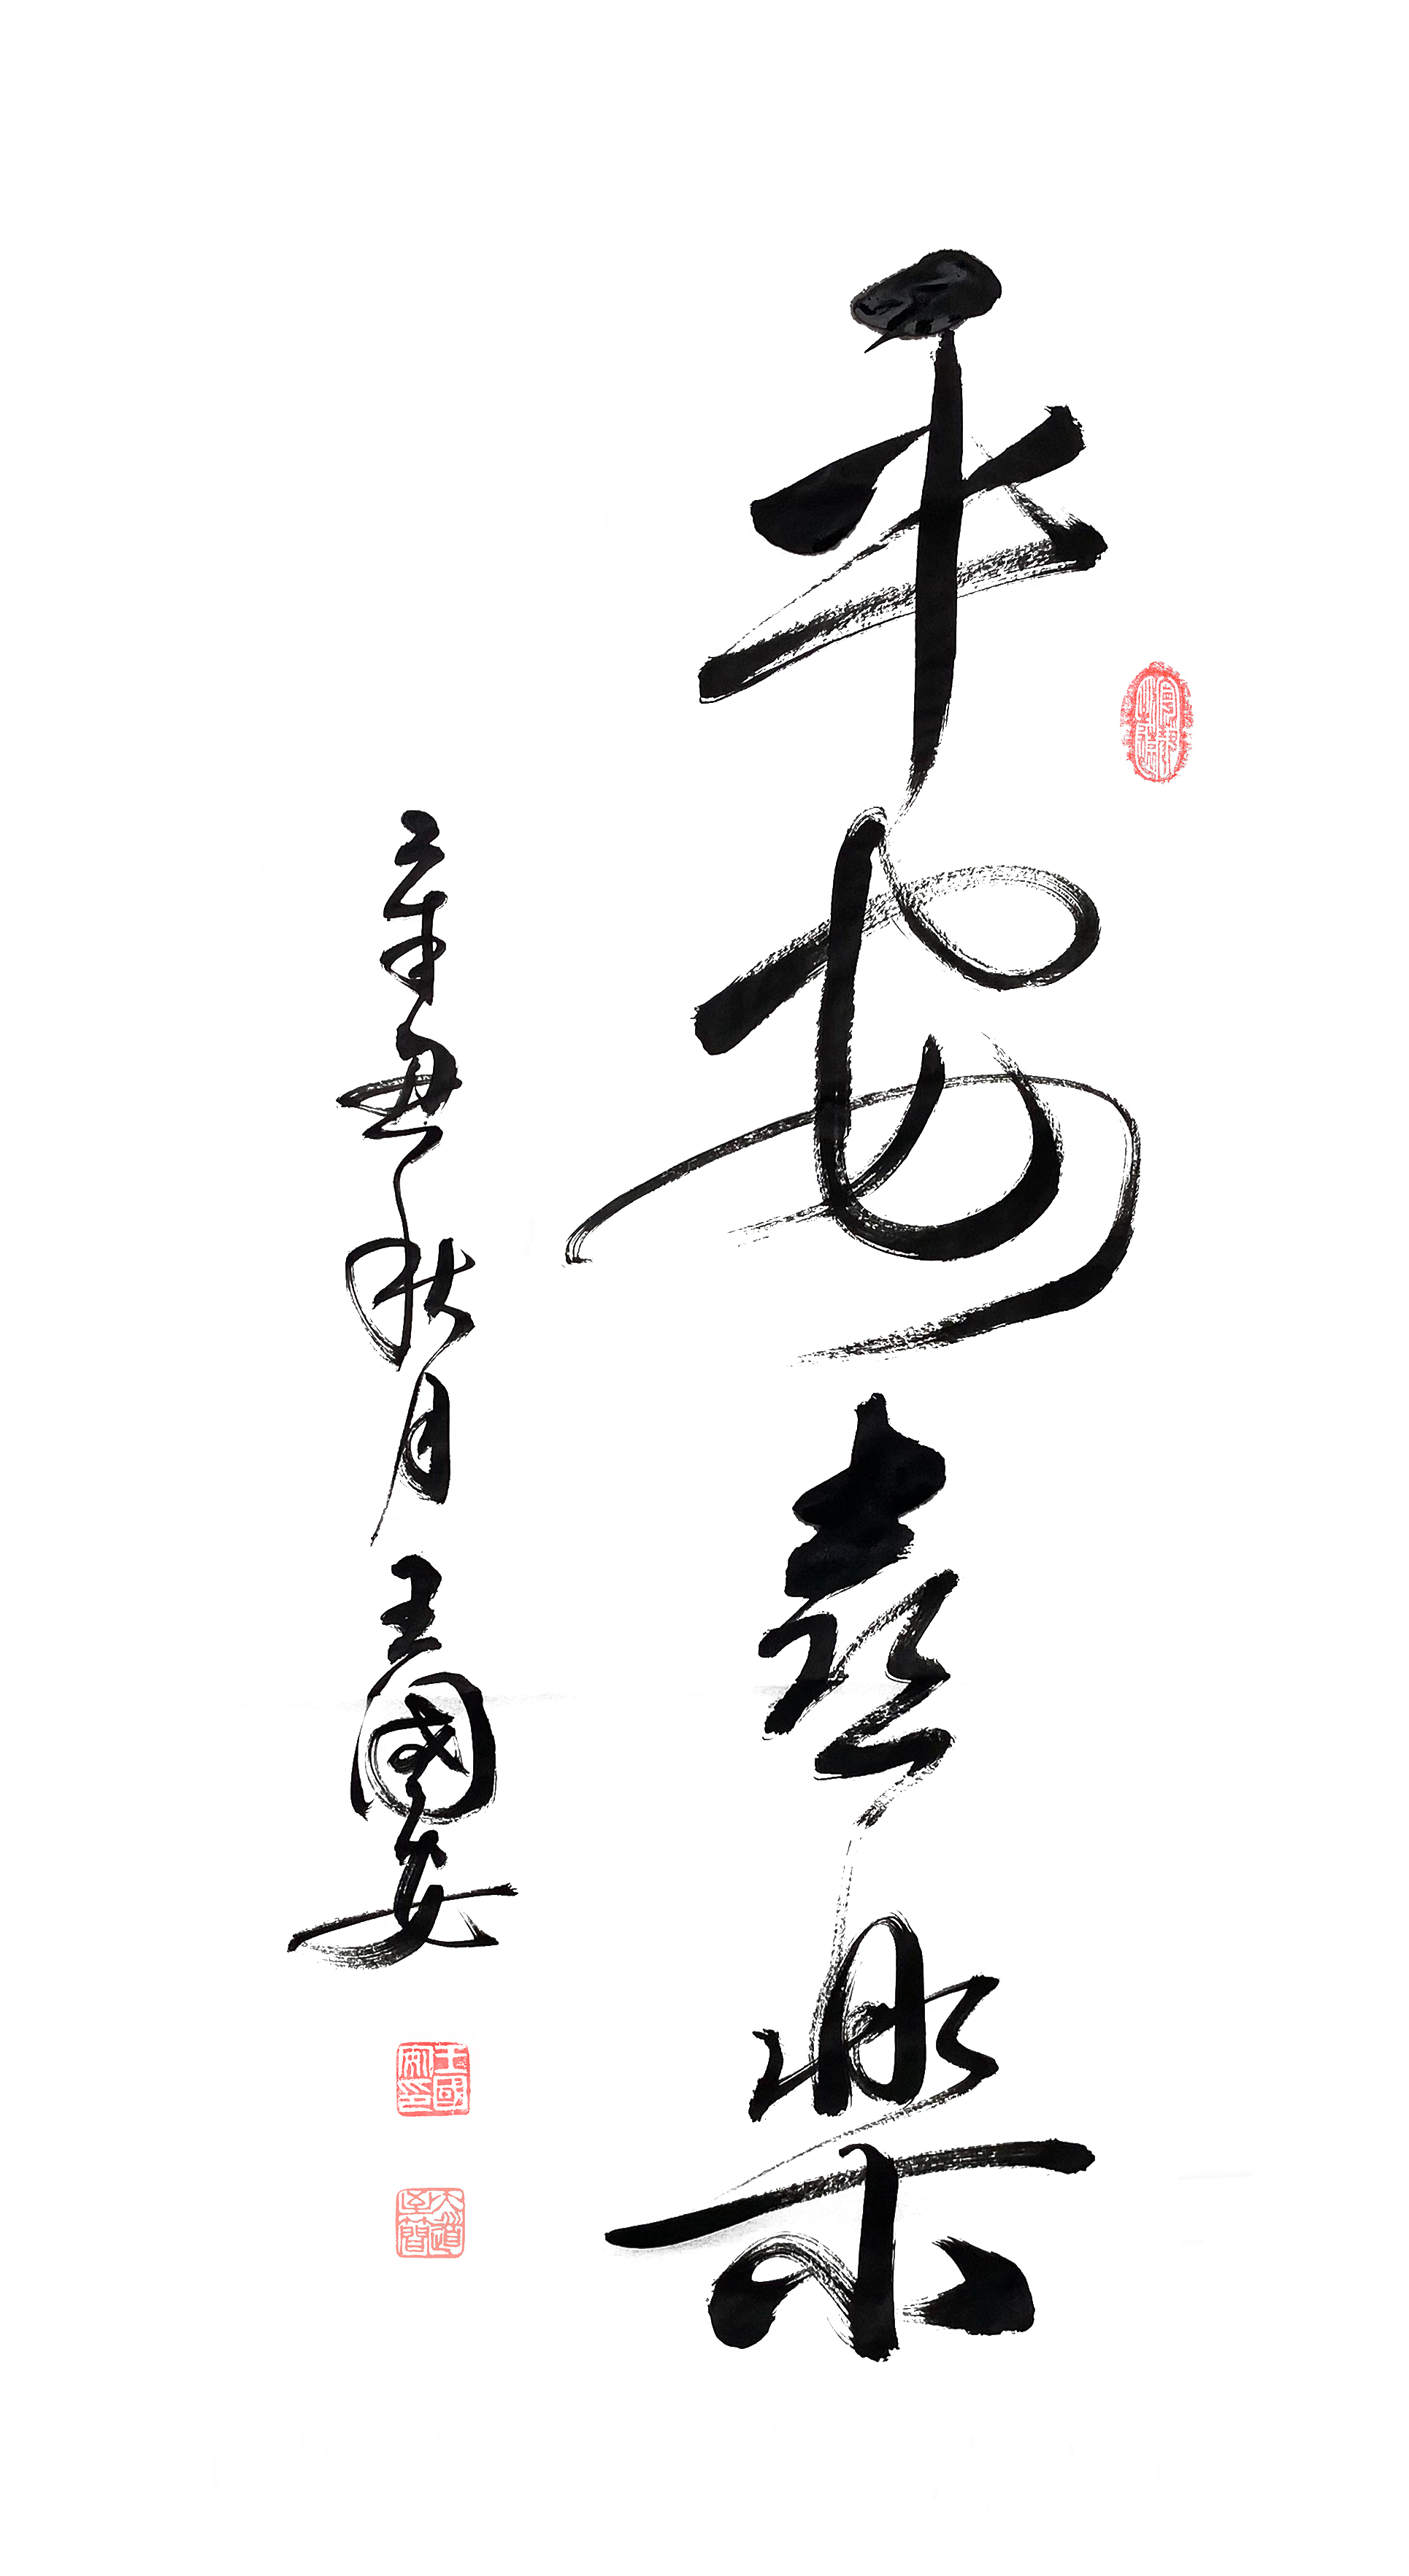 平安喜樂
辛丑秋月王國安
王國安印
大道至簡